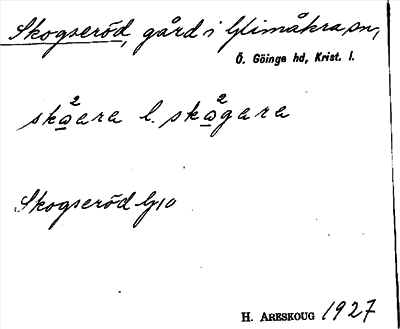 Skogseröd, gård i Glimåkra sn,
Ö. Göinge hd, Krist. l.
skåara l. skågara
Skogseröd G10
H. ARESKOUG 1927